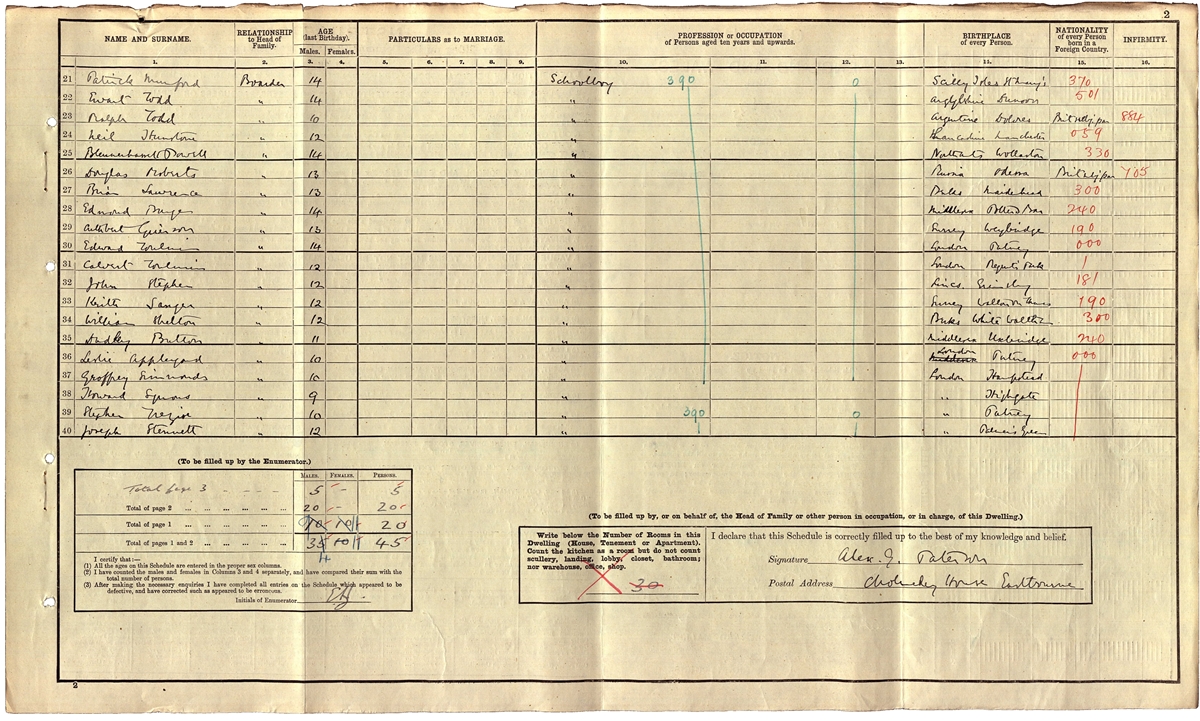 2
NAME AND SURNAME. RELATIONSHIP to Head of Family. AGE (last Birthday). PARTICULARS as to MARRIAGE. PROFESSION or OCCUPATION of Persons aged ten years and upwards. BIRTHPLACE of every Person. NATIONALITY of every Person born in a Foreign Country. INFIRMITY.
Males. Females.
1. 2. 3. 4. 5. 6. 7. 8. 9. 10. 11. 12. 13. 14. 15. 16.
21 Patrick Mumford Boarder 14 Schoolboy 390 0 Scilly Isles St Mary's 370
22 Ewart Todd " 14 " Argyllshire Dunoon 501
23 Ralph Todd " 10 " Argentine Dolores 884
24 Neil " 12 " Lancashire Manchester 059
25 Powell " 14 " Wollaston 330
26 Douglas Roberts " 13 " Russia Odessa 705
27 Brian Lawrence " 13 " Maidenhead 300
28 Edmond " 14 " Middlesex Potters Bar 240
29 Cuthbert Grierson " 13 " Surrey Weybridge 190
30 Edward " 14 " London Putney 000
31 Calvert " 12 " London Regents Park
32 John Stephen " 12 " Lincs. Grimsby 181
33 Keith Sanger " 12 " Surrey Walton on Thames 190
34 William Shelton " 12 " White Waltham 300
35 Dudley Button " 11 " Middlesex Uxbridge 240
36 Leslie Appleyard " 10 " London Putney 000
37 Geoffrey Simmonds " 10 " London Hampstead
38 Howard " 9 " " Highgate
39 Stephen " 10 " 390 0 " Putney
40 Joseph Stennett " 12 " " Palmers Green
(To be filled up by the Enumerator.)
MALES. FEMALES. PERSONS.
Total page 3 5 - 5
Total of page 2 20 - 20
Total of page 1 20
Total of pages 1 and 2 45
I certify that:—
(1) All the ages on this Schedule are entered in the proper sex columns.
(2) I have counted the males and females in Columns 3 and 4 separately, and have compared their sum with the total number of persons.
(3) After making the necessary enquiries I have completed all entries on the Schedule which appeared to be defective, and have corrected such as appeared to be erroneous.
Initials of Enumerator
(To be filled up by, or on behalf of, the Head of Family or other person in occupation, or in charge, of this Dwelling.)
Write below the Number of Rooms in this Dwelling (House, Tenement or Apartment). Count the kitchen as a room but do not count scullery, landing, lobby, closet, bathroom; nor warehouse, office, shop.
30
I declare that this Schedule is correctly filled up to the best of my knowledge and belief.
Signature Alex. J. Paterson
Postal Address Cholmeley House Eastbourne
2